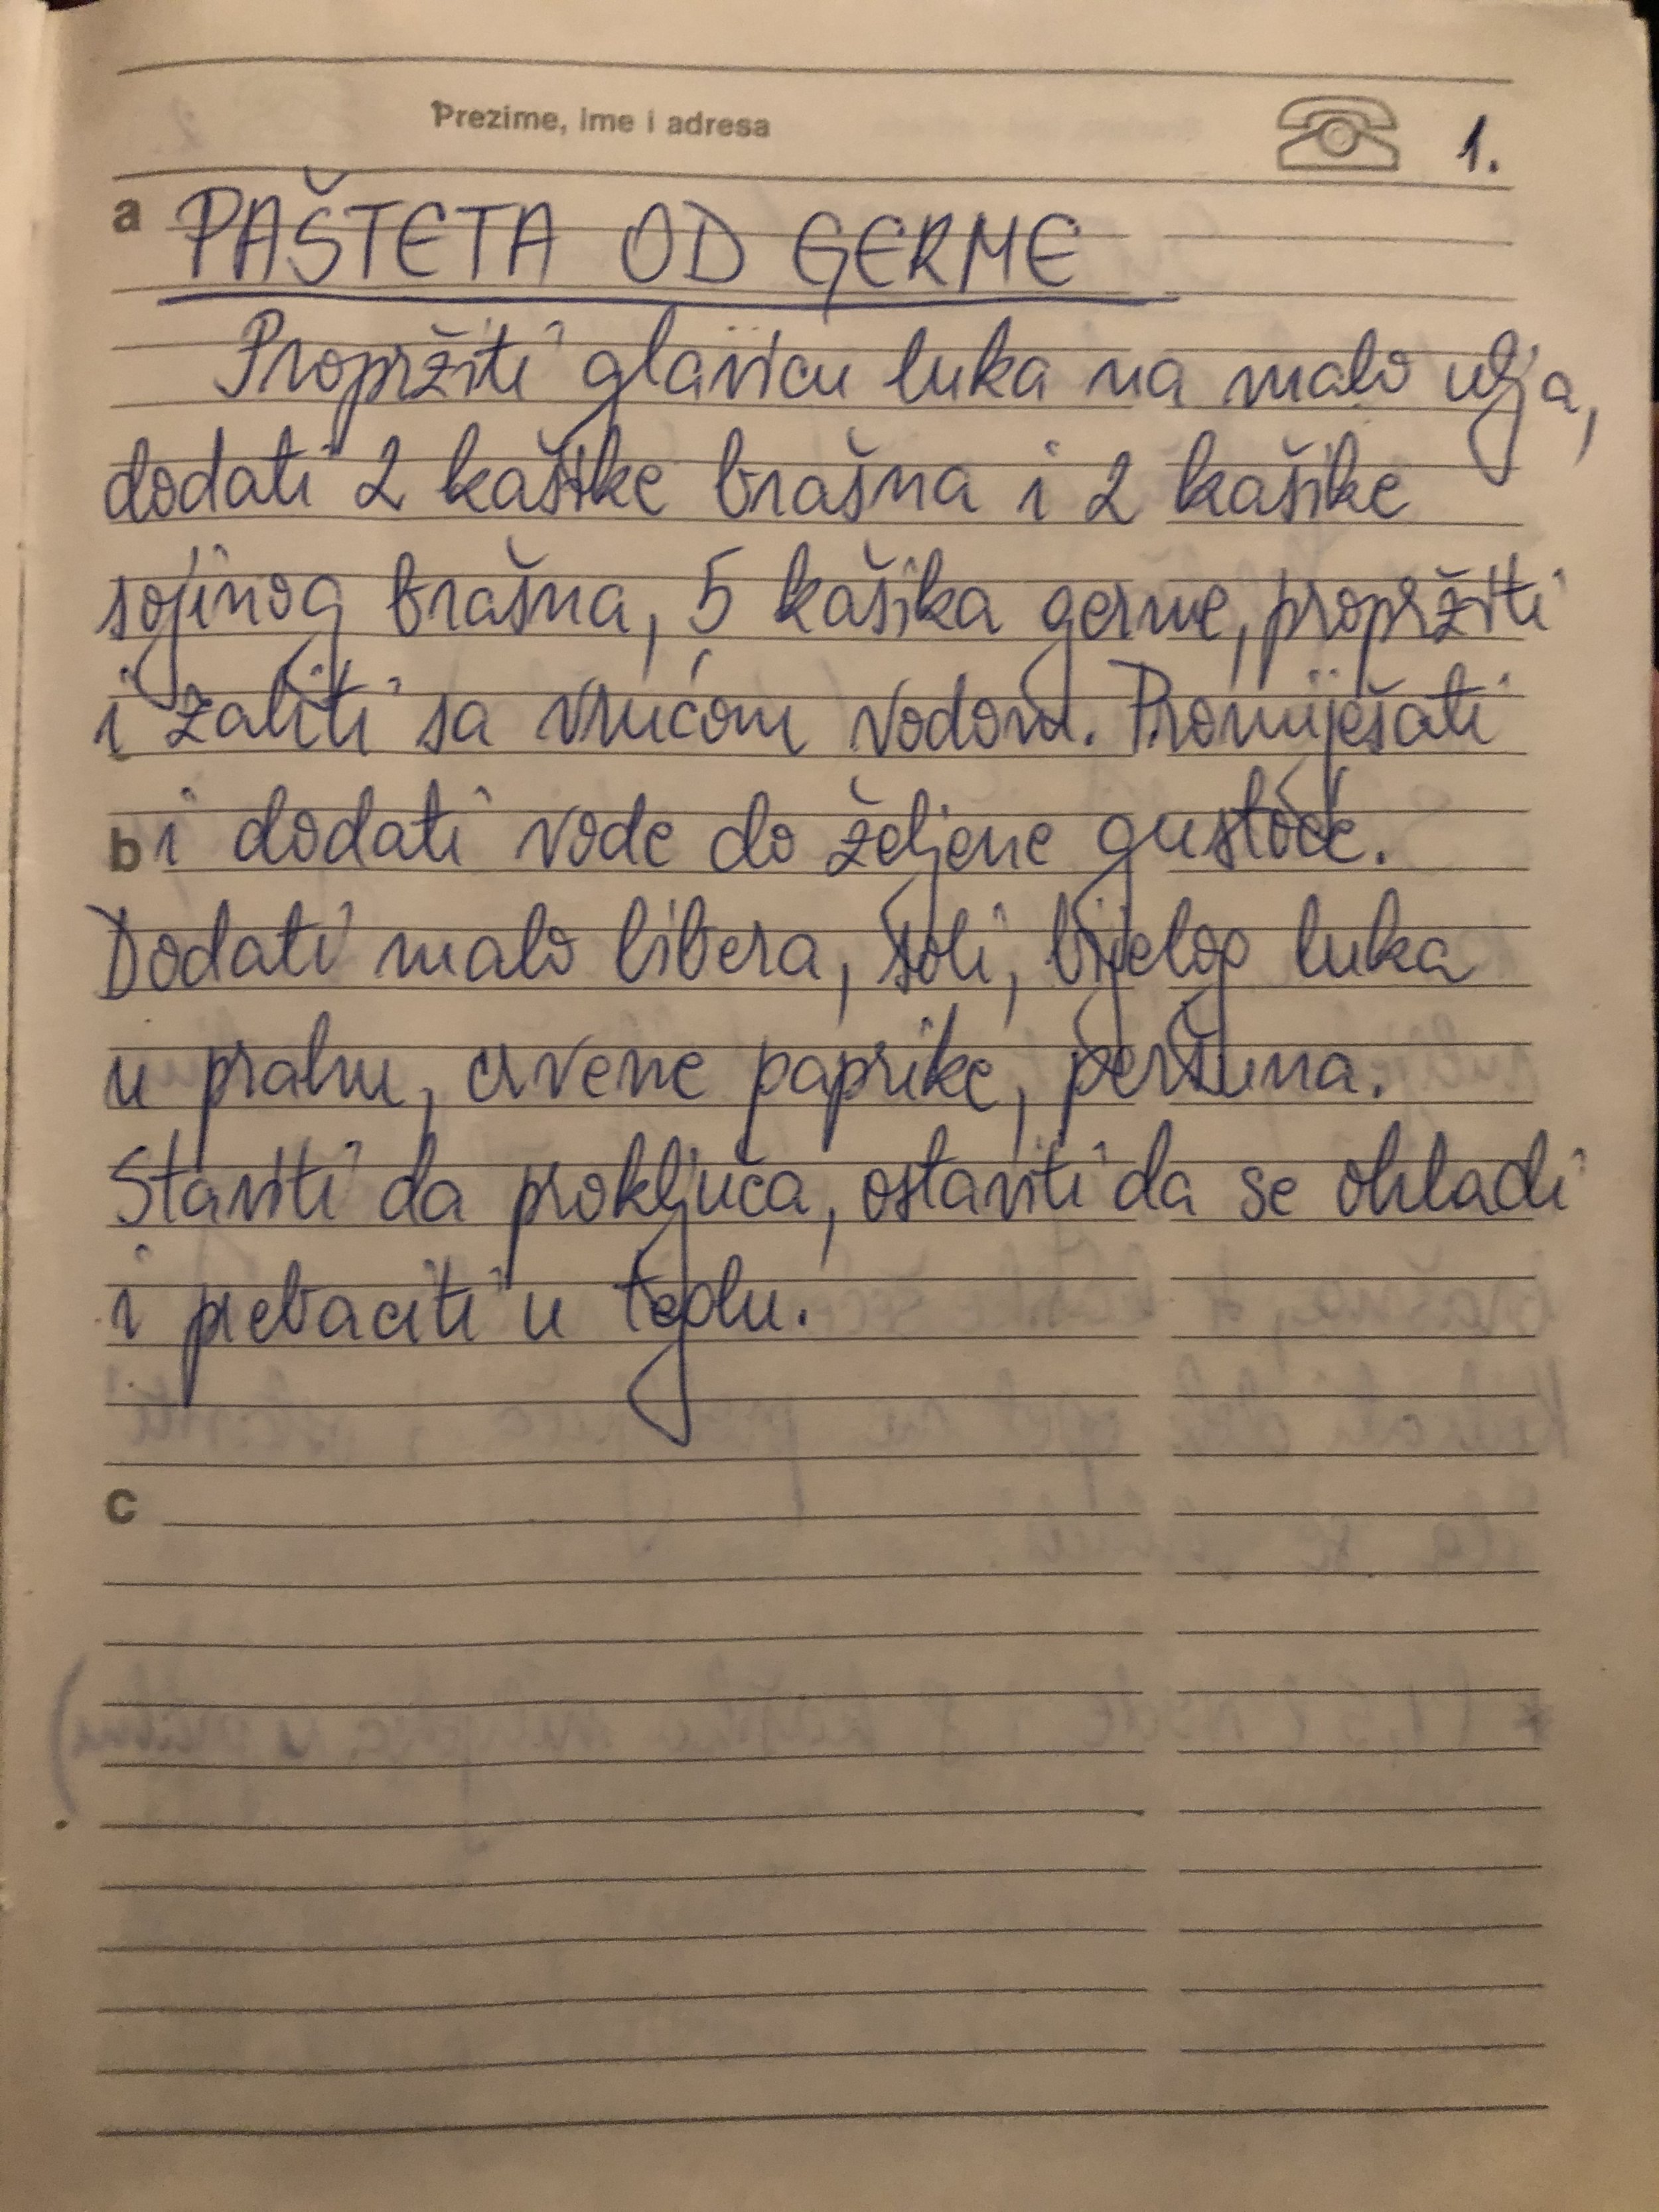 Prezime, ime i adresa 1.
a PAŠTETA OD GERME
Propržiti glavicu luka na malo ulja,
dodati 2 kašike brašna i 2 kašike
sojinog brašna, 5 kašika germe, propržiti
i zaliti sa vrućom vodom. Promiješati
b i dodati vode do željene gustoće.
Dodati malo libera, soli, bijelog luka
u prahu, crvene paprike, peršuna.
Staviti da proključa, ostaviti da se ohladi
i prebaciti u teglu.
c